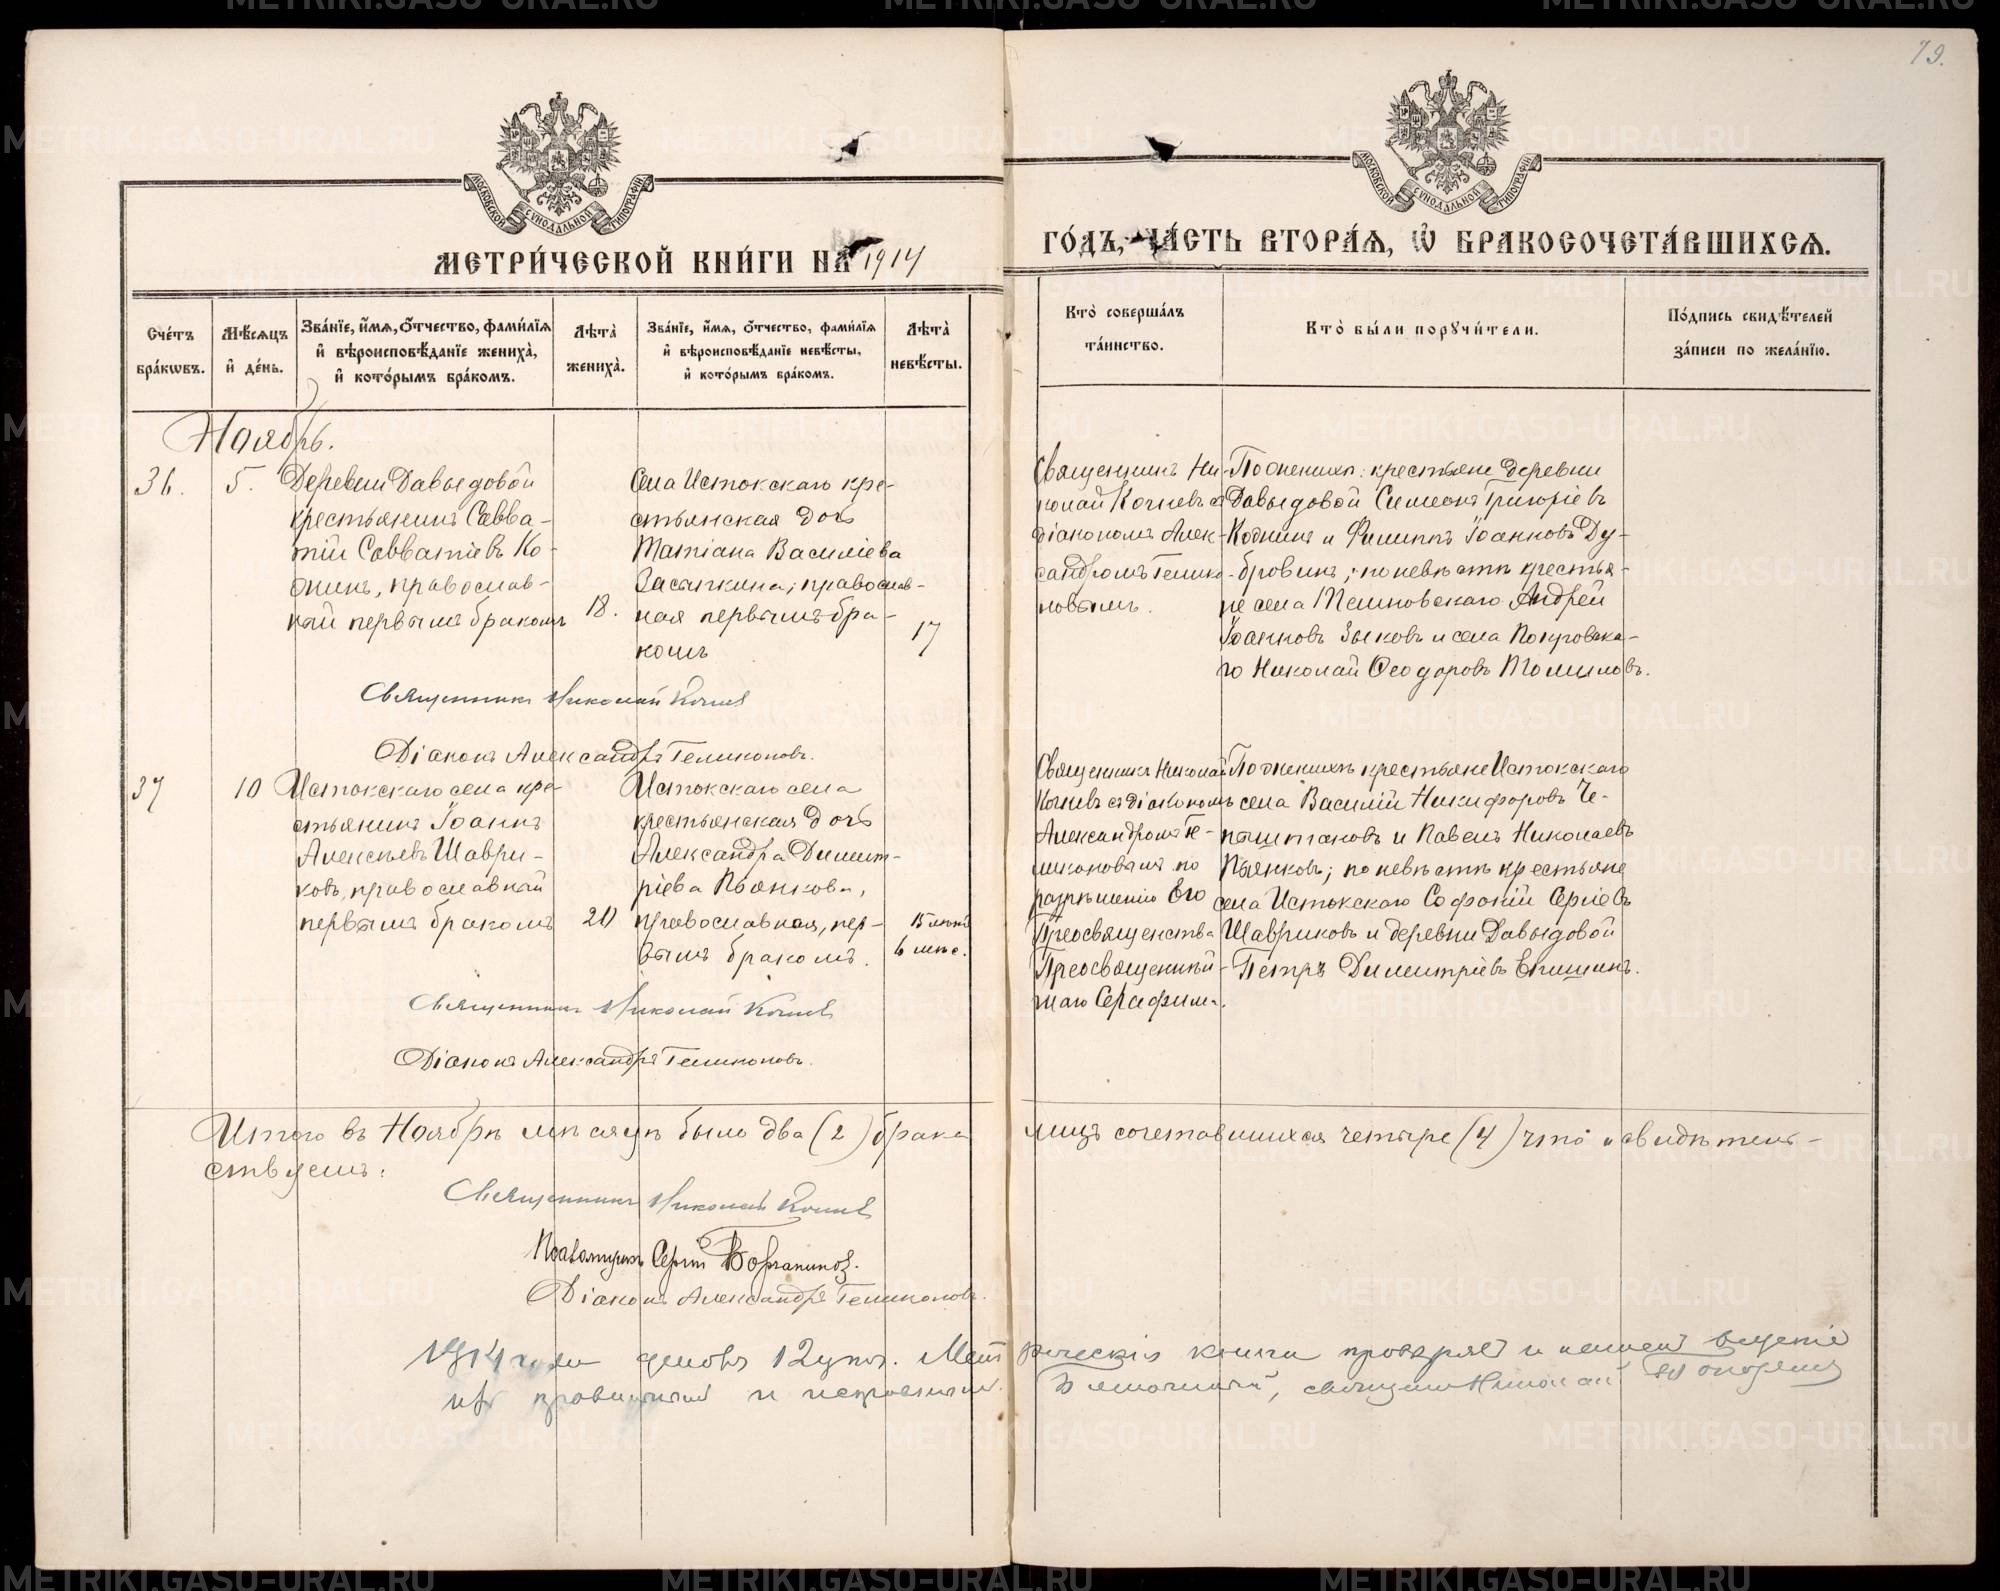 79.
МОСКОВСКОЙ СУНОДАЛЬНОЙ ТИПОГРАФІИ
МОСКОВСКОЙ СУНОДАЛЬНОЙ ТИПОГРАФІИ
МЕТРИ́ЧЕСКОЙ КНИ́ГИ НА 1914
ГО́ДЪ, ЧА́СТЬ ВТОРА́Я, Ѿ БРАКОСОЧЕТА́ВШИХСЯ.
Сче́тъ бра́кѡвъ.
Мѣ́сяцъ и҆ де́нь.
Зва́нїе, и҆́мѧ, ѻ҆́тчество, фами́лїѧ и҆ вѣроисповѣ́данїе жениха̀, и҆ кото́рымъ бра́комъ.
Лѣ́та жениха̀.
Зва́нїе, и҆́мѧ, ѻ҆́тчество, фами́лїѧ и҆ вѣроисповѣ́данїе невѣ́сты, и҆ кото́рымъ бра́комъ.
Лѣ́та невѣ́сты.
Кто̀ соверша́лъ та́инство.
Кто̀ бы́ли порꙋчи́тели.
По́дпись свидѣ́телей за́писи по жела́нїю.
Ноябрь.
36.
5.
Деревни Давыдовой
крестьянинъ Савва-
тій Савватіевъ Ко-
днинъ, православ-
ный первымъ бракомъ
18.
Села Истокскаго кре-
стьянская дочь
Татіана Василіева
Засыпкина, православ-
ная первымъ бра-
комъ
17
Священникъ Ни-
колай Кочневъ съ
діакономъ Алек-
сандромъ Гелико-
новымъ.
По женихѣ: крестьяне деревни
Давыдовой Симеонъ Григоріевъ
Коднинъ и Филиппъ Іоанновъ Ду-
бровинъ; по невѣстѣ крестья-
не села Темновскаго Андрей
Іоанновъ Зыковъ и села Покровска-
го Николай Ѳеодоровъ Томиловъ.
Священникъ Николай Кочнев
Діаконъ Александръ Геликоновъ.
37
10
Истокскаго села кре-
стьянинъ Іоаннъ
Алексѣевъ Шаври-
ковъ, православный
первымъ бракомъ
20
Истокскаго села
крестьянская дочь
Александра Димит-
ріева Пьянкова,
православная, пер-
вымъ бракомъ.
15 лѣтъ
6 мѣс.
Священникъ Николай
Кочневъ съ діакономъ
Александромъ Ге-
ликоновымъ по
разрѣшенію Его
Преосвященства
Преосвященнѣй-
шаго Серафима.
По женихѣ крестьяне Истокскаго
села Василій Никифоровъ Че-
пыштаковъ и Павелъ Николаевъ
Пьянковъ; по невѣстѣ крестьяне
села Истокскаго Софоній Сергіевъ
Шавриковъ и деревни Давыдовой
Петръ Димитріевъ Епишинъ.
Священникъ Николай Кочнев
Діаконъ Александръ Геликоновъ.
Итого въ Ноябрѣ мѣсяцѣ было два (2) брака лицъ сочетавшихся четыре (4) что и свидѣтель-
ствуемъ:
Священникъ Николай Кочнев
Псаломщикъ Сергій
Діаконъ Александръ Геликоновъ.
1914 года 12 книги и
и священникъ Николай
METRIKI.GASO-URAL.RU